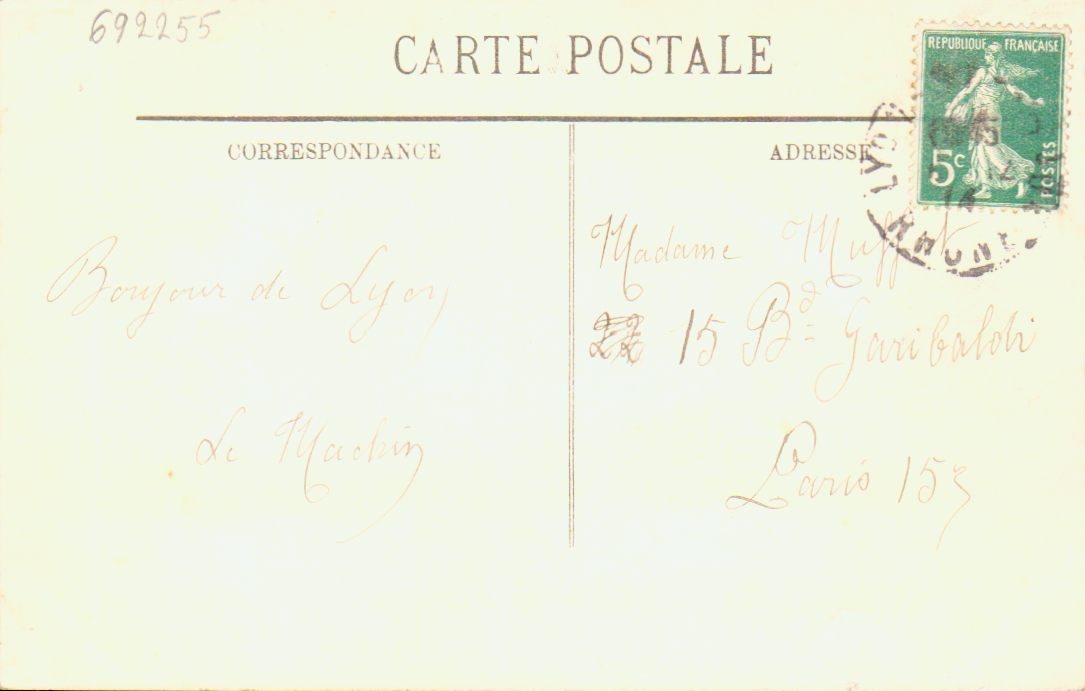 692255
CARTE POSTALE
REPUBLIQUE FRANÇAISE
5c
POSTES
LYON
RHONE
CORRESPONDANCE
ADRESSE
Bonjour de Lyon
Le Machin
Madame Muffat
15 Bd Garibaldi
Paris 15e